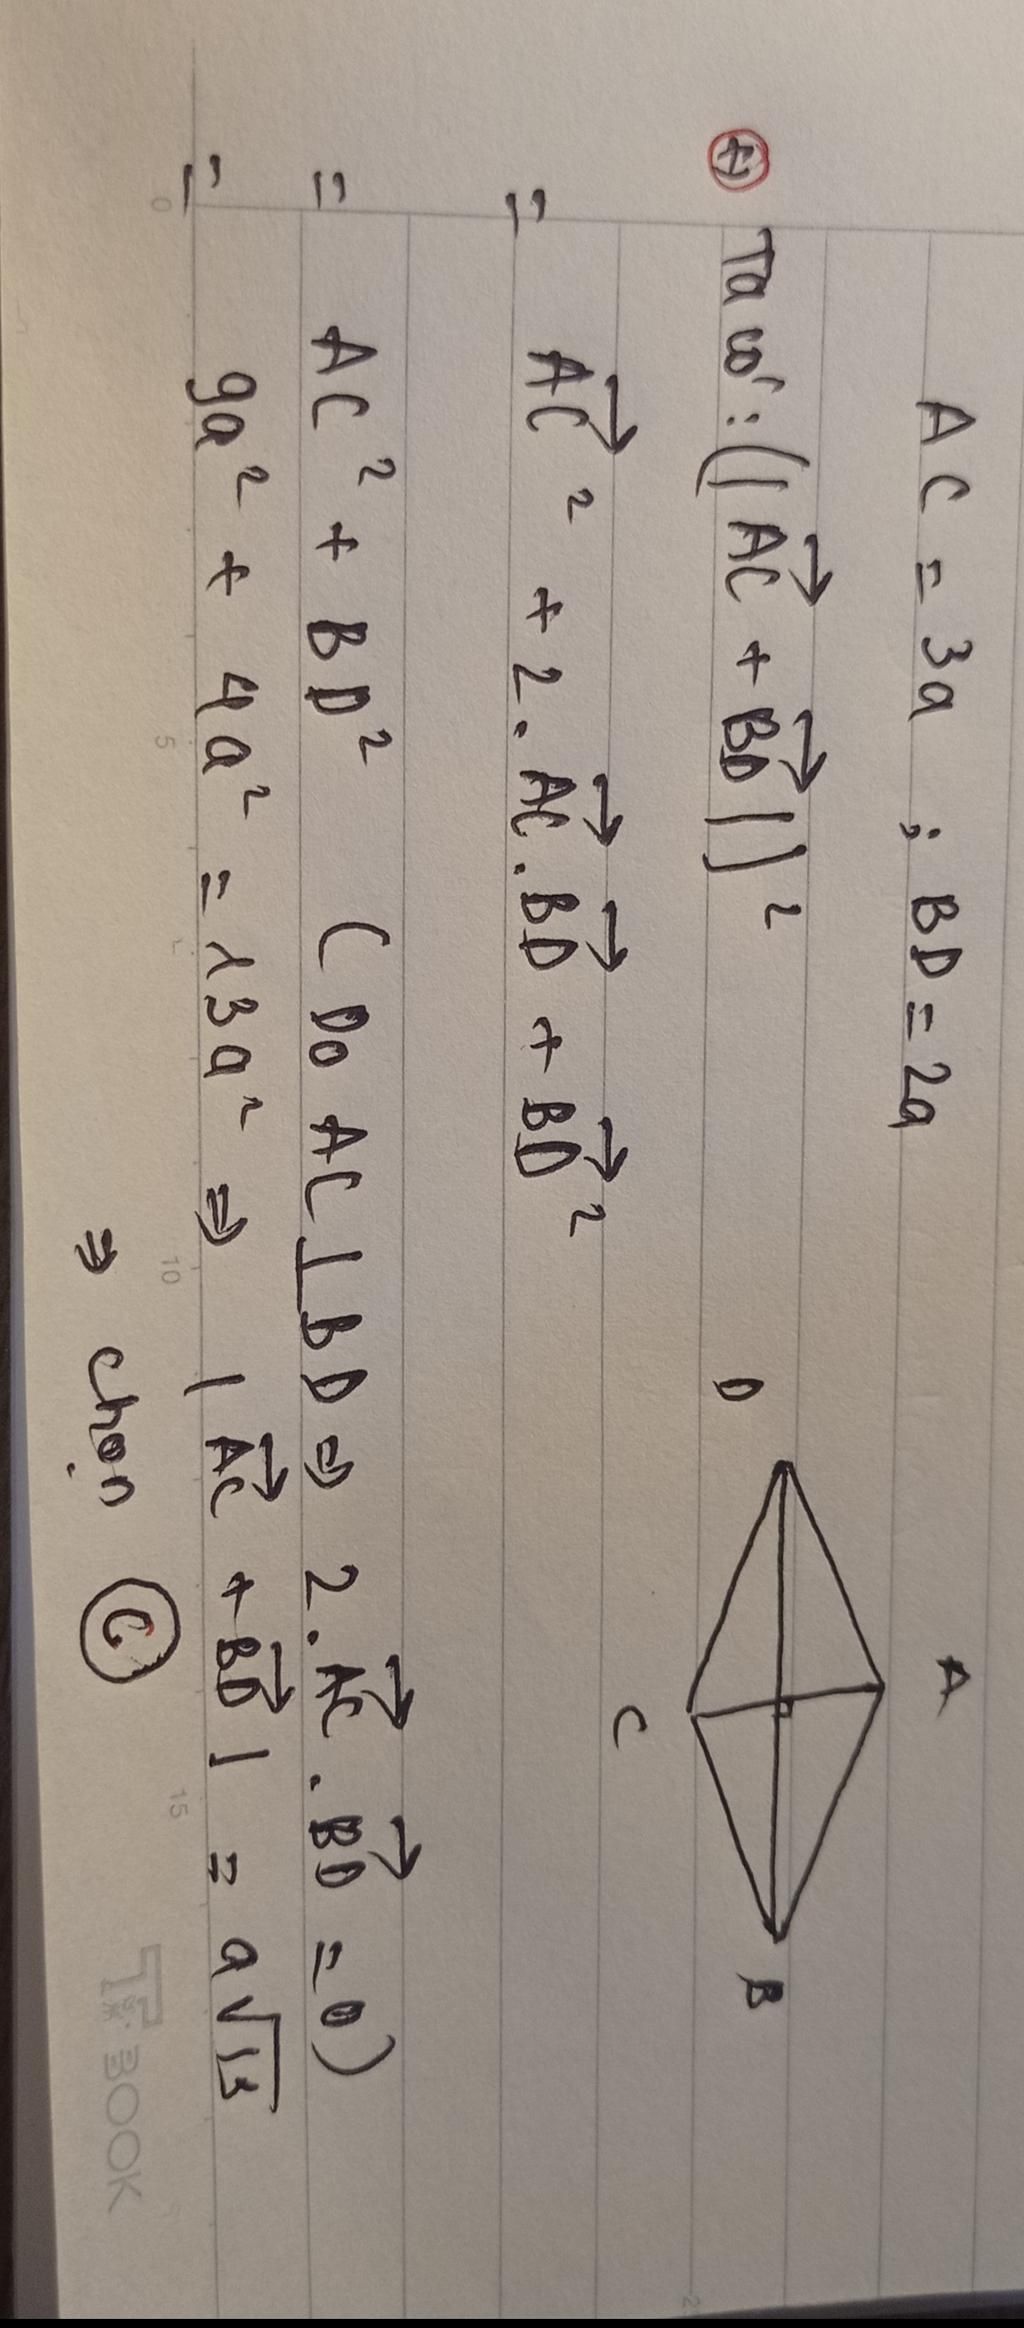 AC = 3a ; BD = 2a
A
D
B
C
+ Ta có : (|AC→ + BD→|)²
= AC→² + 2.AC→.BD→ + BD→²
= AC² + BD² (Do AC ⊥ BD ⇒ 2.AC→.BD→ = 0)
= 9a² + 4a² = 13a² ⇒ |AC→ + BD→| = a√13
⇒ chọn C
0 5 10 15 2
BOOK